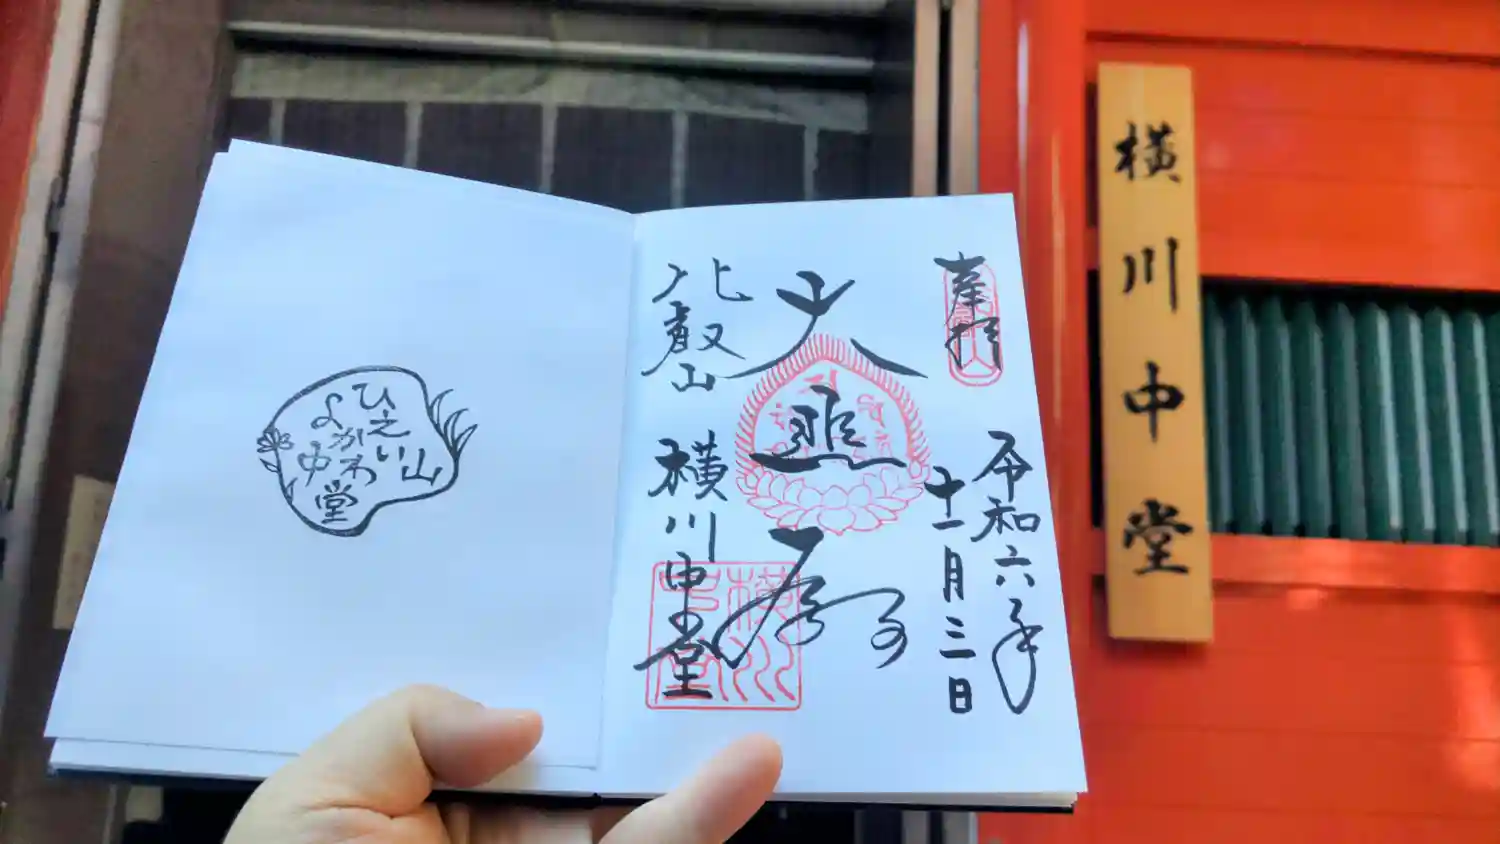 奉拝
令和六年
十一月三日
大悲殿
比叡山
横川中堂
横川中堂
ひえい山
よかわ
中堂